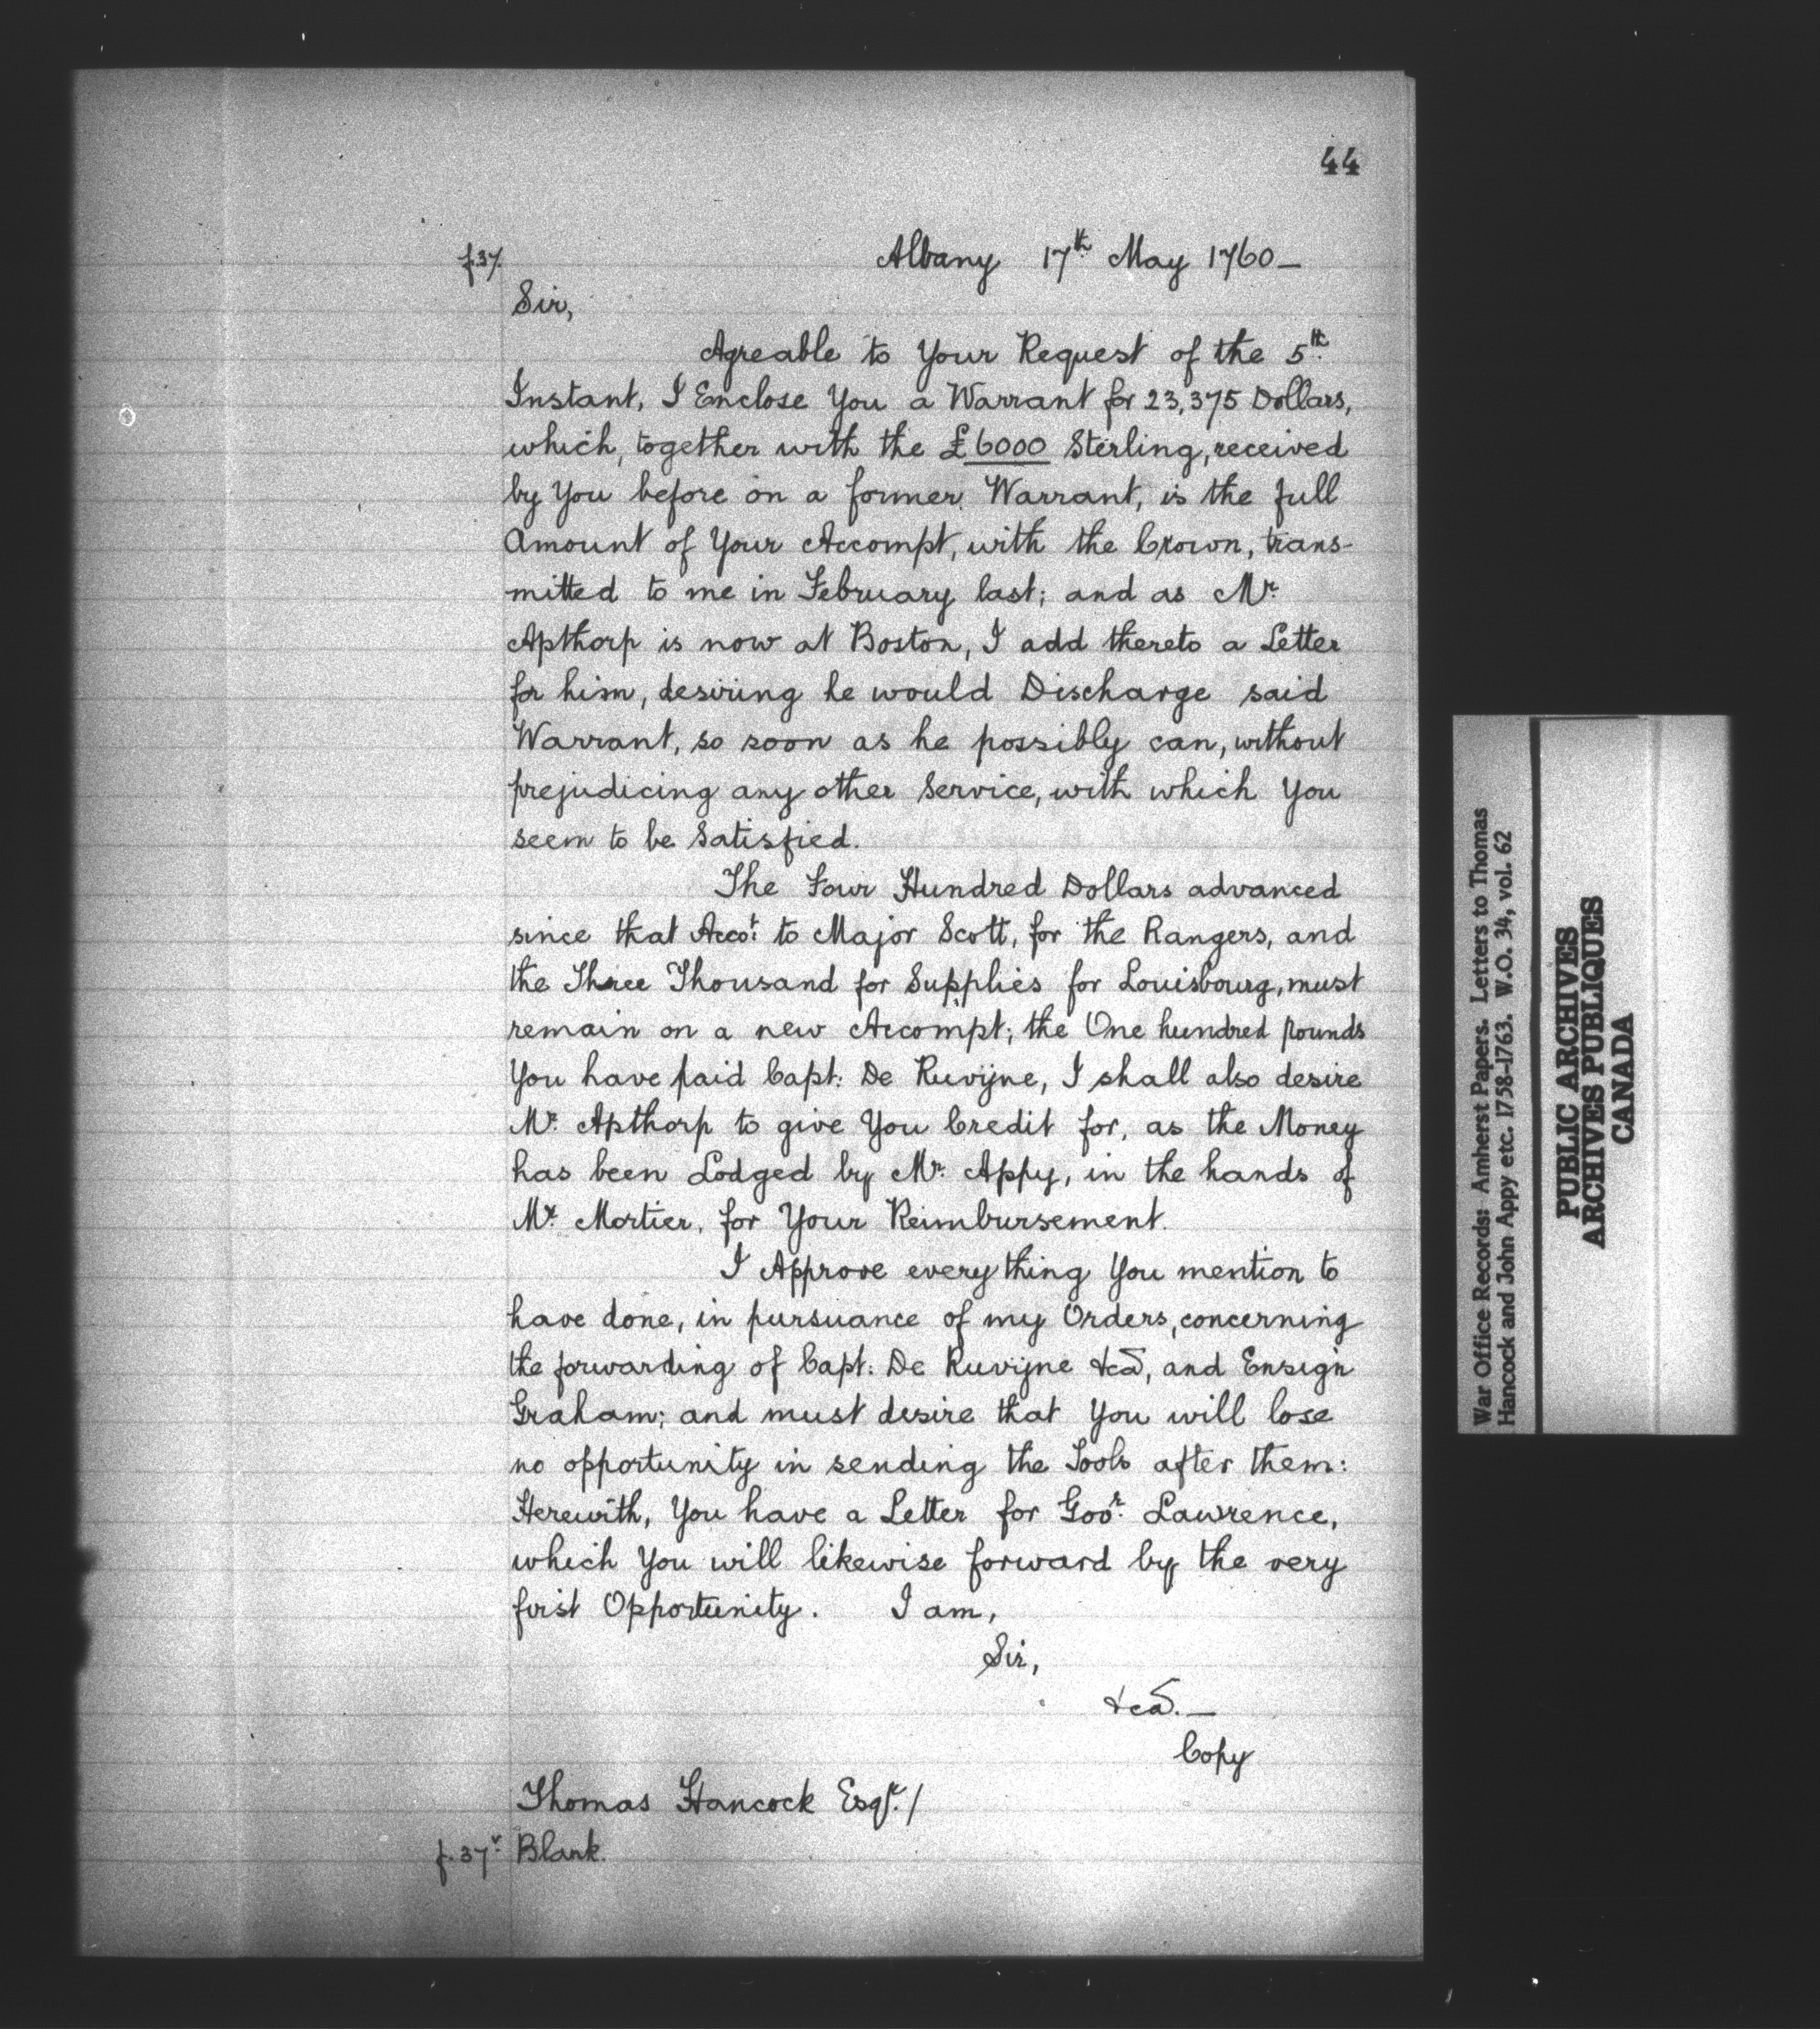 44
f.37. Albany 17th May 1760_
Sir,
Agreable to Your Request of the 5th
Instant, I Enclose You a Warrant for 23,375 Dollars,
which, together with the £6000 Sterling, received
by You before on a former Warrant, is the full
Amount of Your Accompt, with the Crown, trans-
mitted to me in February last; and as Mr.
Apthorp is now at Boston, I add thereto a Letter
for him, desiring he would Discharge said
Warrant, so soon as he possibly can, without
prejudicing any other Service, with which You
seem to be Satisfied.
The Four Hundred Dollars advanced
since that Accot. to Major Scott, for the Rangers, and
the Three Thousand for Supplies for Louisbourg, must
remain on a new Accompt; the One hundred pounds
You have paid Capt: De Ruvijne, I shall also desire
Mr. Apthorp to give You Credit for, as the Money
has been Lodged by Mr. Appy, in the hands of
Mr. Mortier, for Your Reimbursement.
I Approve every thing You mention to
have done, in pursuance of my Orders, concerning
the forwarding of Capt: De Ruvijne &ca, and Ensign
Graham; and must desire that You will lose
no opportunity in sending the Tools after them:
Herewith, You have a Letter for Govr. Lawrence,
which You will likewise forward by the very
first Opportunity. I am,
Sir,
&ca._
Copy
Thomas Hancock Esqr./
f.37v. Blank.
War Office Records: Amherst Papers. Letters to Thomas
Hancock and John Appy etc. 1758-1763. W.O. 34, vol. 62
PUBLIC ARCHIVES
ARCHIVES PUBLIQUES
CANADA